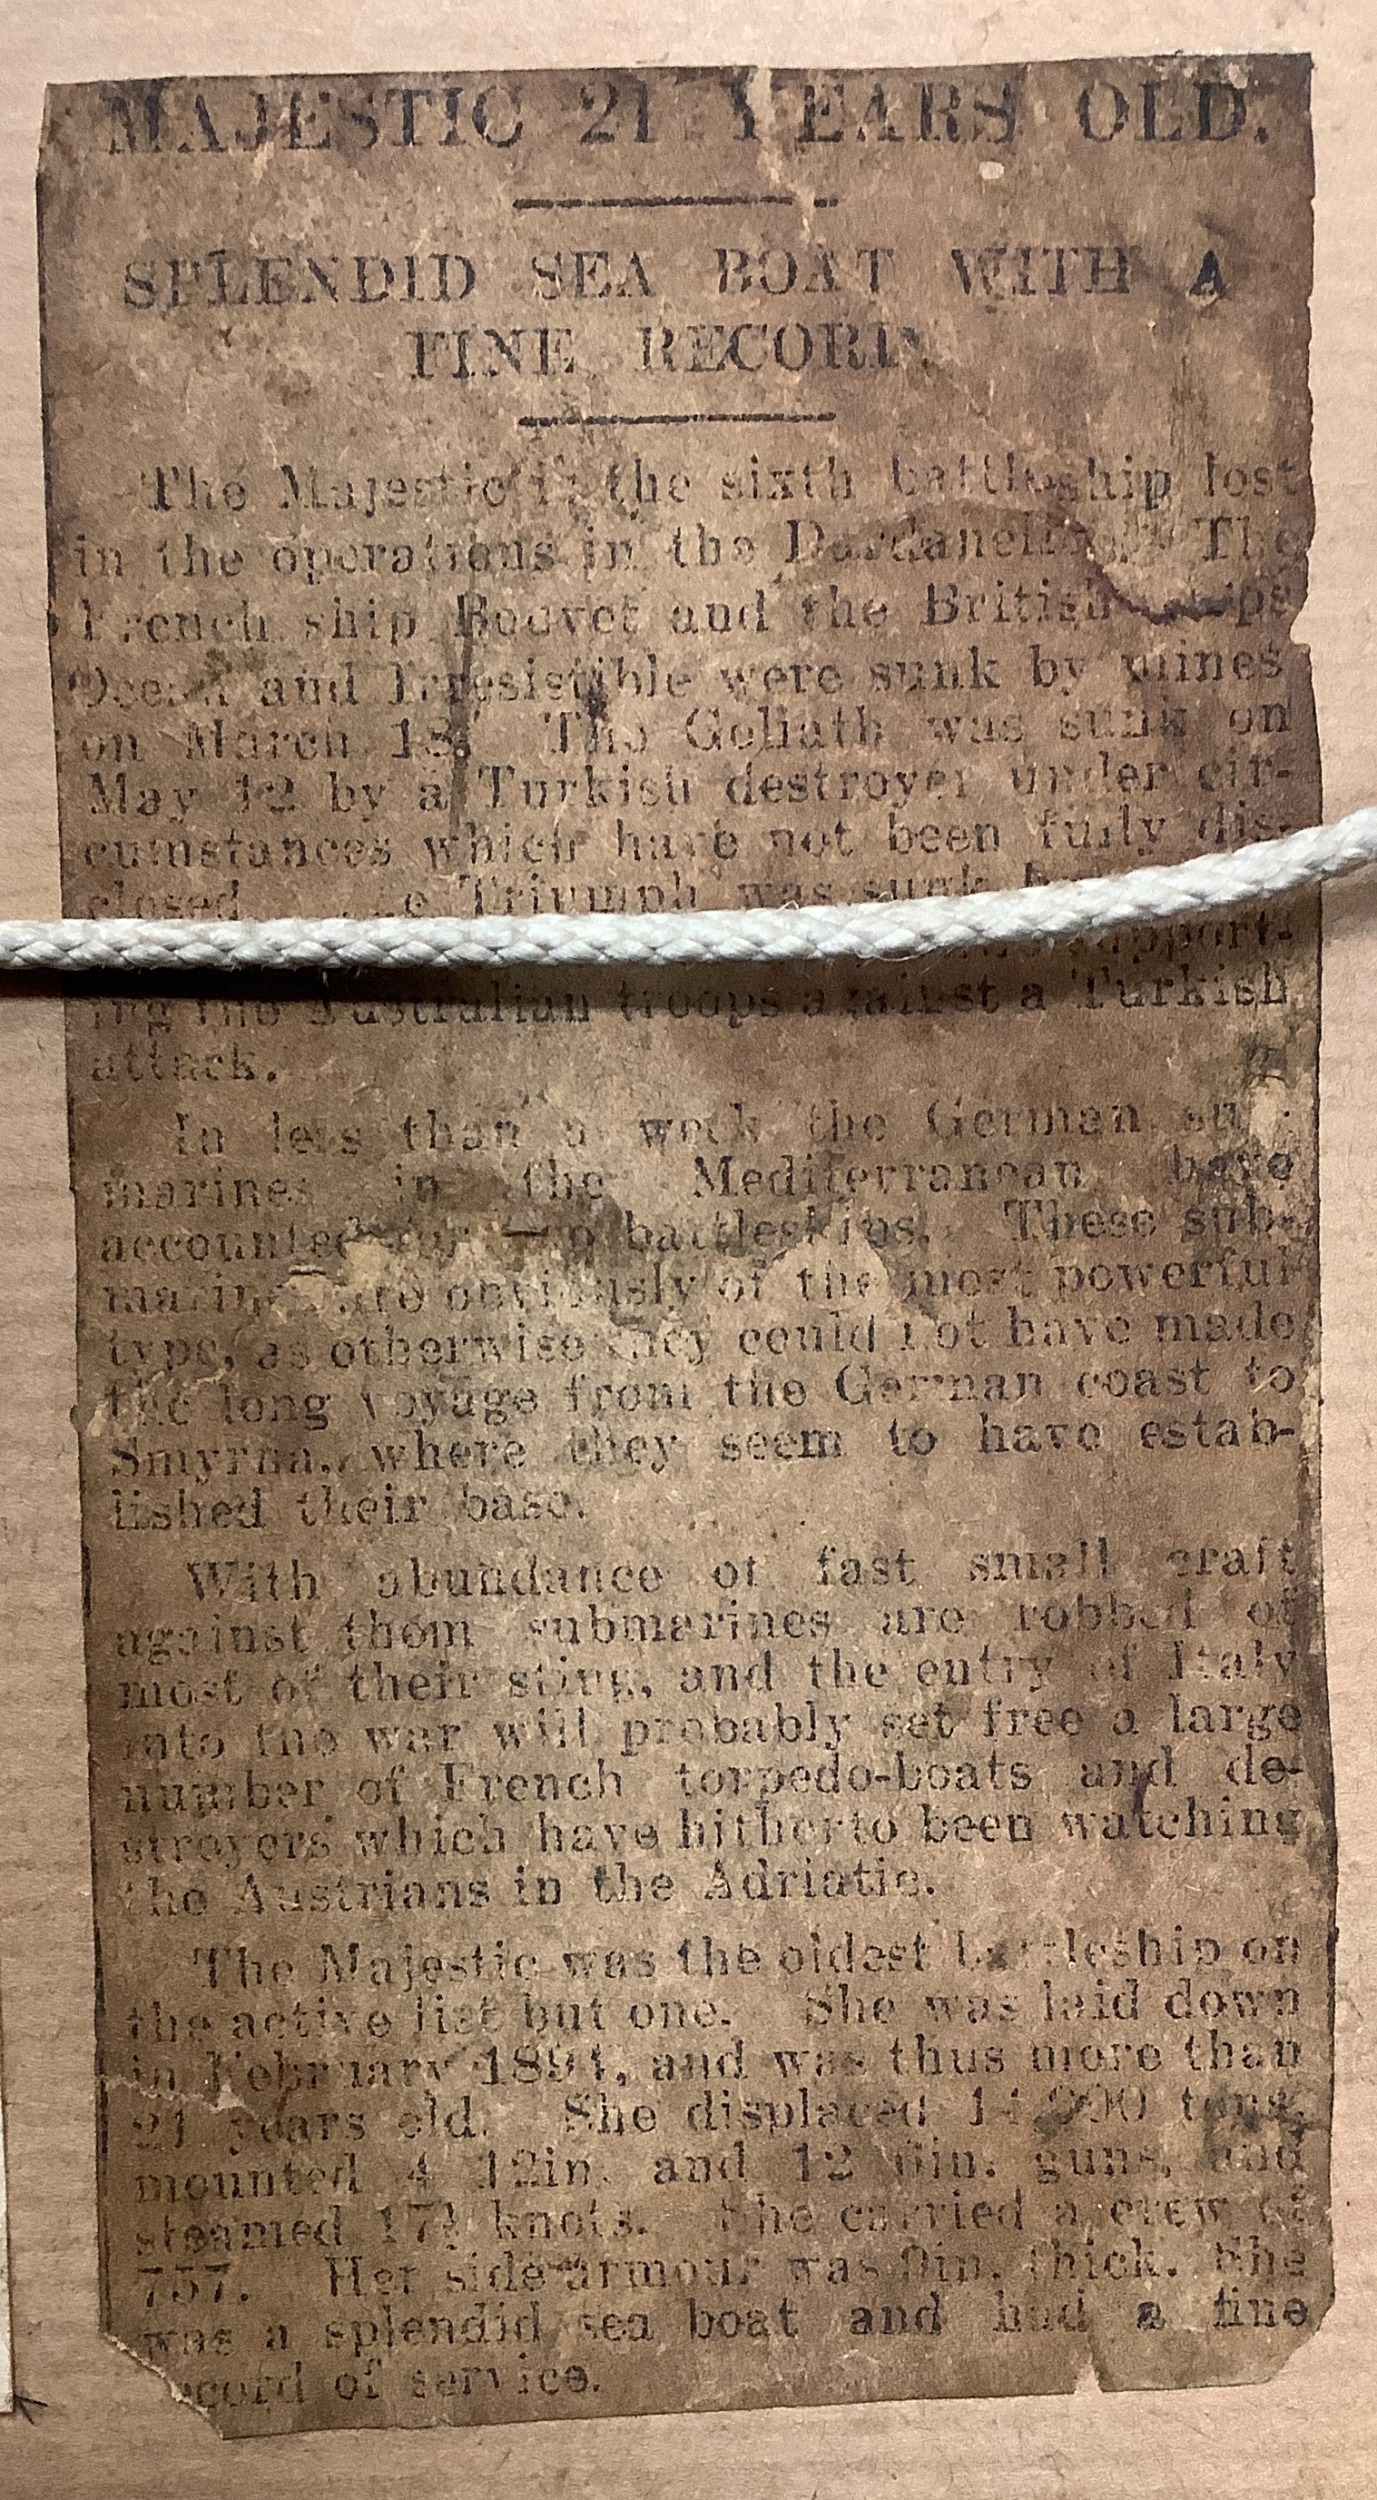 MAJESTIC 21 YEARS OLD.
SPLENDID SEA BOAT WITH A
FINE RECORD.
The Majestic is the sixth battleship lost
in the operations in the Dardanelles. The
French ship Bouvet and the British ships
Ocean and Irresistible were sunk by mines
on March 18. The Goliath was sunk on
May 12 by a Turkish destroyer under cir-
cumstances which have not been fully dis-
closed. The Triumph was sunk
support-
ing the Australian troops against a Turkish
attack.
In less than a week the German sub-
marines in the Mediterranean have
accounted for two battleships. These sub-
marines are obviously of the most powerful
type, as otherwise they could not have made
the long voyage from the German coast to
Smyrna, where they seem to have estab-
lished their base.
With abundance of fast small craft
against them submarines are robbed of
most of their sting, and the entry of Italy
into the war will probably set free a large
number of French torpedo-boats and de-
stroyers which have hitherto been watching
the Austrians in the Adriatic.
The Majestic was the oldest battleship on
the active list but one. She was laid down
in February 1894, and was thus more than
21 years old. She displaced 14,900 tons,
mounted 4 12in. and 12 6in. guns, and
steamed 17½ knots. She carried a crew of
757. Her side armour was 9in. thick. She
was a splendid sea boat and had a fine
record of service.